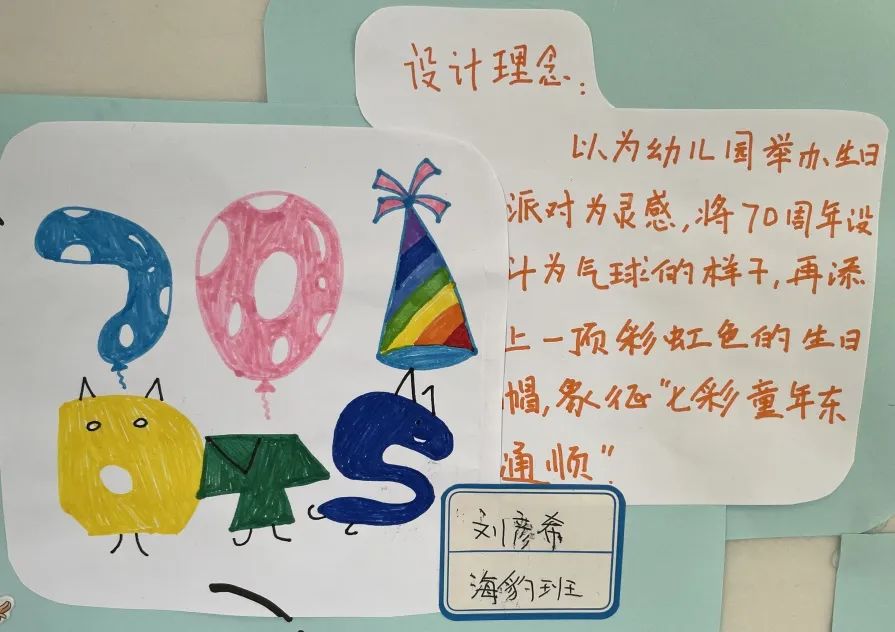 70
DTS
设计理念:
以为幼儿园举办生日
派对为灵感,将70周年设
计为气球的样子,再添
上一顶彩虹色的生日
帽,象征“七彩童年东
通顺”
刘彦希
海豹班